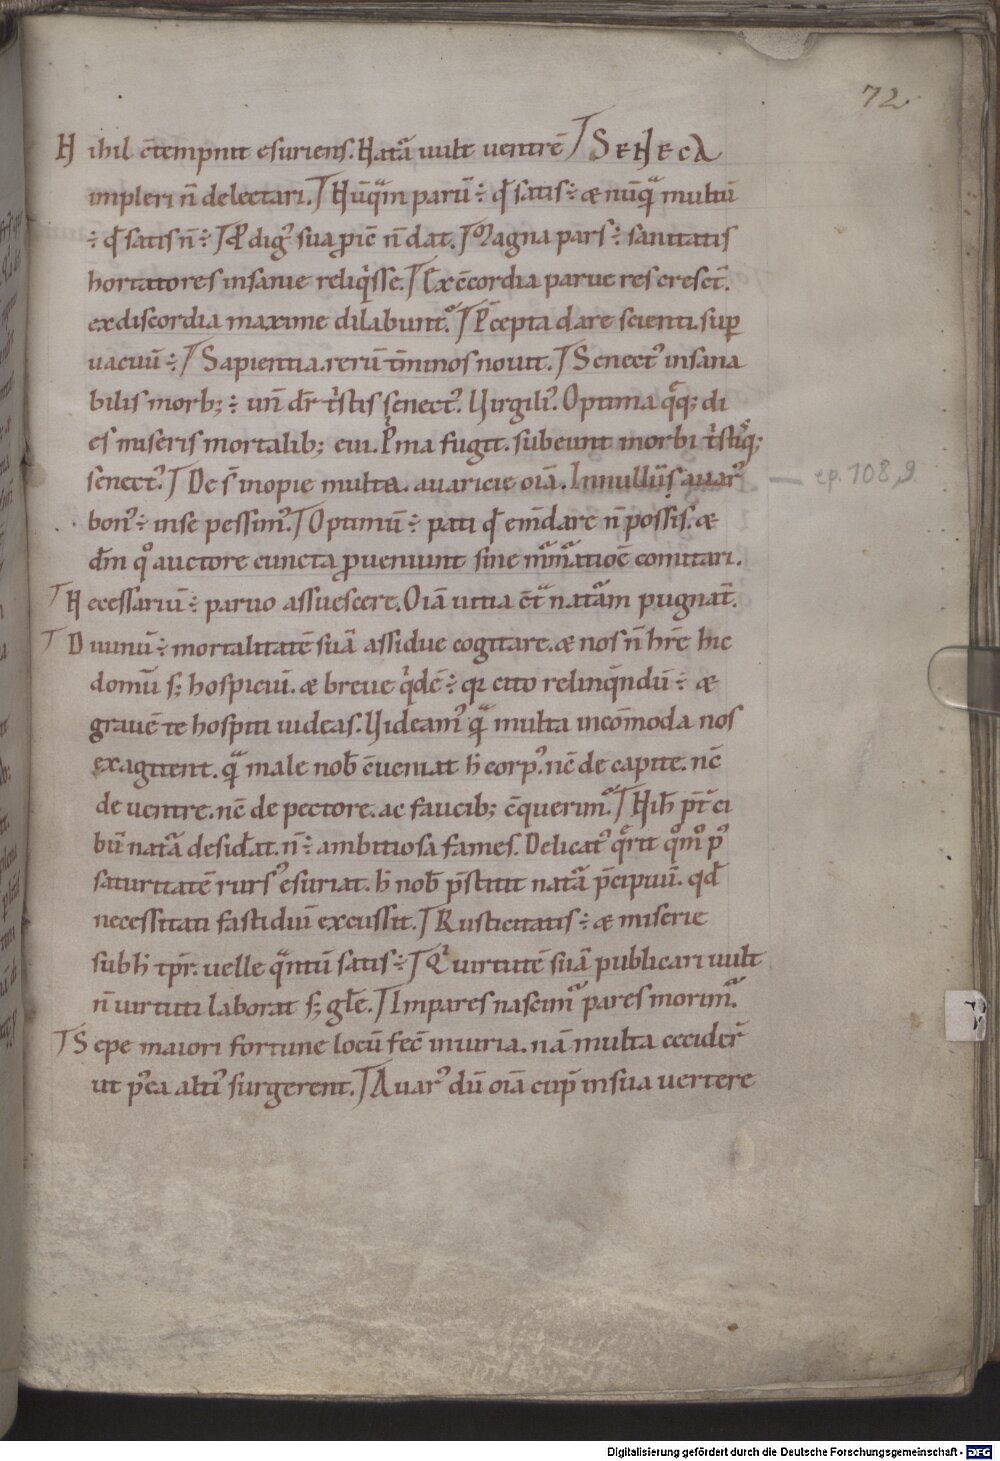 72
Nihil c̄tempnit esuriens. Natā uult uentrē SENECA
impleri n̄ delectari. Nūq̄m parū ÷ qđ satis ÷ & nūq̄ multū
÷ qđ satis n̄ ÷ dig' sua p̄ic̄ n̄ dat. Magna pars ÷ sanitatis
hortatores insanie reliq̇sse. Ex c̄cordia parue res cresct̄.
ex discordia maxime dilabunt. P̄cepta dare scienti. sup
uacuū ÷ Sapientia. rerū t̄minos nouit. Senect' insana
bilis morb; ÷ un̄ dr̄ tristis senect'. Uirgili'. Optima q̄q; di
es miseris mortalib; eui. Prima fugit. subeunt morbi tristiq;
senect'. De s̄ inopie multa. auaricie oīa. In nullū s̄ auar'
bon' ÷ in se pessim'. Optimū ÷ pati qđ em̄dare n̄ possis. &
dm̄ q° auctore cuncta ꝓueniunt sine m̄m̄atioē comitari.
Necessariū ÷ paruo assuescere. Oīa uitia c̄t̄ natām pugnāt.
Diuinū ÷ mortalitatē suā assidue cogitare. & nos n̄ hr̄e hic
domū s; hospiciū. & breue q̇dē ÷ qr cito relinq̄ndū ÷ &
grauē te hospiti uideas. Uideam' q̄ multa incōmoda nos
exagitent. q̄ male nob̄ c̄ueniat h̄ corp'. nc̄ de capite. nc̄
de uentre. nc̄ de pectore. ac faucib; c̄querim̄. Nih̄ p̄t̄ ci
bū natā desid̄at. n̄ ÷ ambitiosa fames. Delicat' q̄rit q°m° p'
saturitatē rurs' esuriat. h̄ nob̄ p̄stitit natā p̄cipuū. qđ
necessitati fastidiū excussit. Rusticitatis ÷ & miserie
subh̄ tpr̄. uelle q̄ntū satis ÷ Qi uirtutē suā publicari uult
n̄ uirtuti laborat s; gl̄e. Impares nascim̄ pares morim̄.
Sepe maiori fortune locū fec̄ iniuria. nā multa ceciderī
ut p'ea alti' surgerent. Auar' dū oīa cup̄ in sua uertere
ep. 108,9
Digitalisierung gefördert durch die Deutsche Forschungsgemeinschaft - DFG